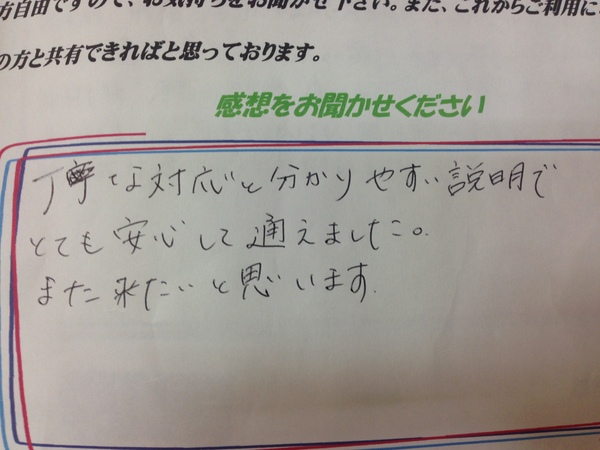 方自由ですので、お気持ちをお聞かせ下さい。また、これからご利用に
の方と共有できればと思っております。
感想をお聞かせください
丁寧な対応と分かりやすい説明で
とても安心して通えました。
また来たいと思います.